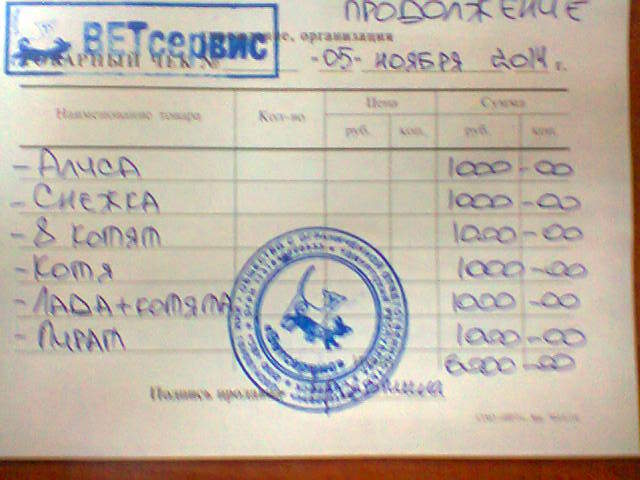 ПРОДОЛЖЕНИЕ
ВЕТсервис
организация
ТОВАРНЫЙ ЧЕК № -05- НОЯБРЯ 2014 г.
Наименование товара Кол-во Цена Сумма
руб. коп. руб. коп.
- АЛИСА 1000-00
- СНЕЖКА 1000-00
- 8 КОТЯТ 1000-00
- КОТЯ 1000-00
- ЛАДА+КОТЯТА 1000-00
- ПИРАТ 1000-00
6000-00
Подпись продавца